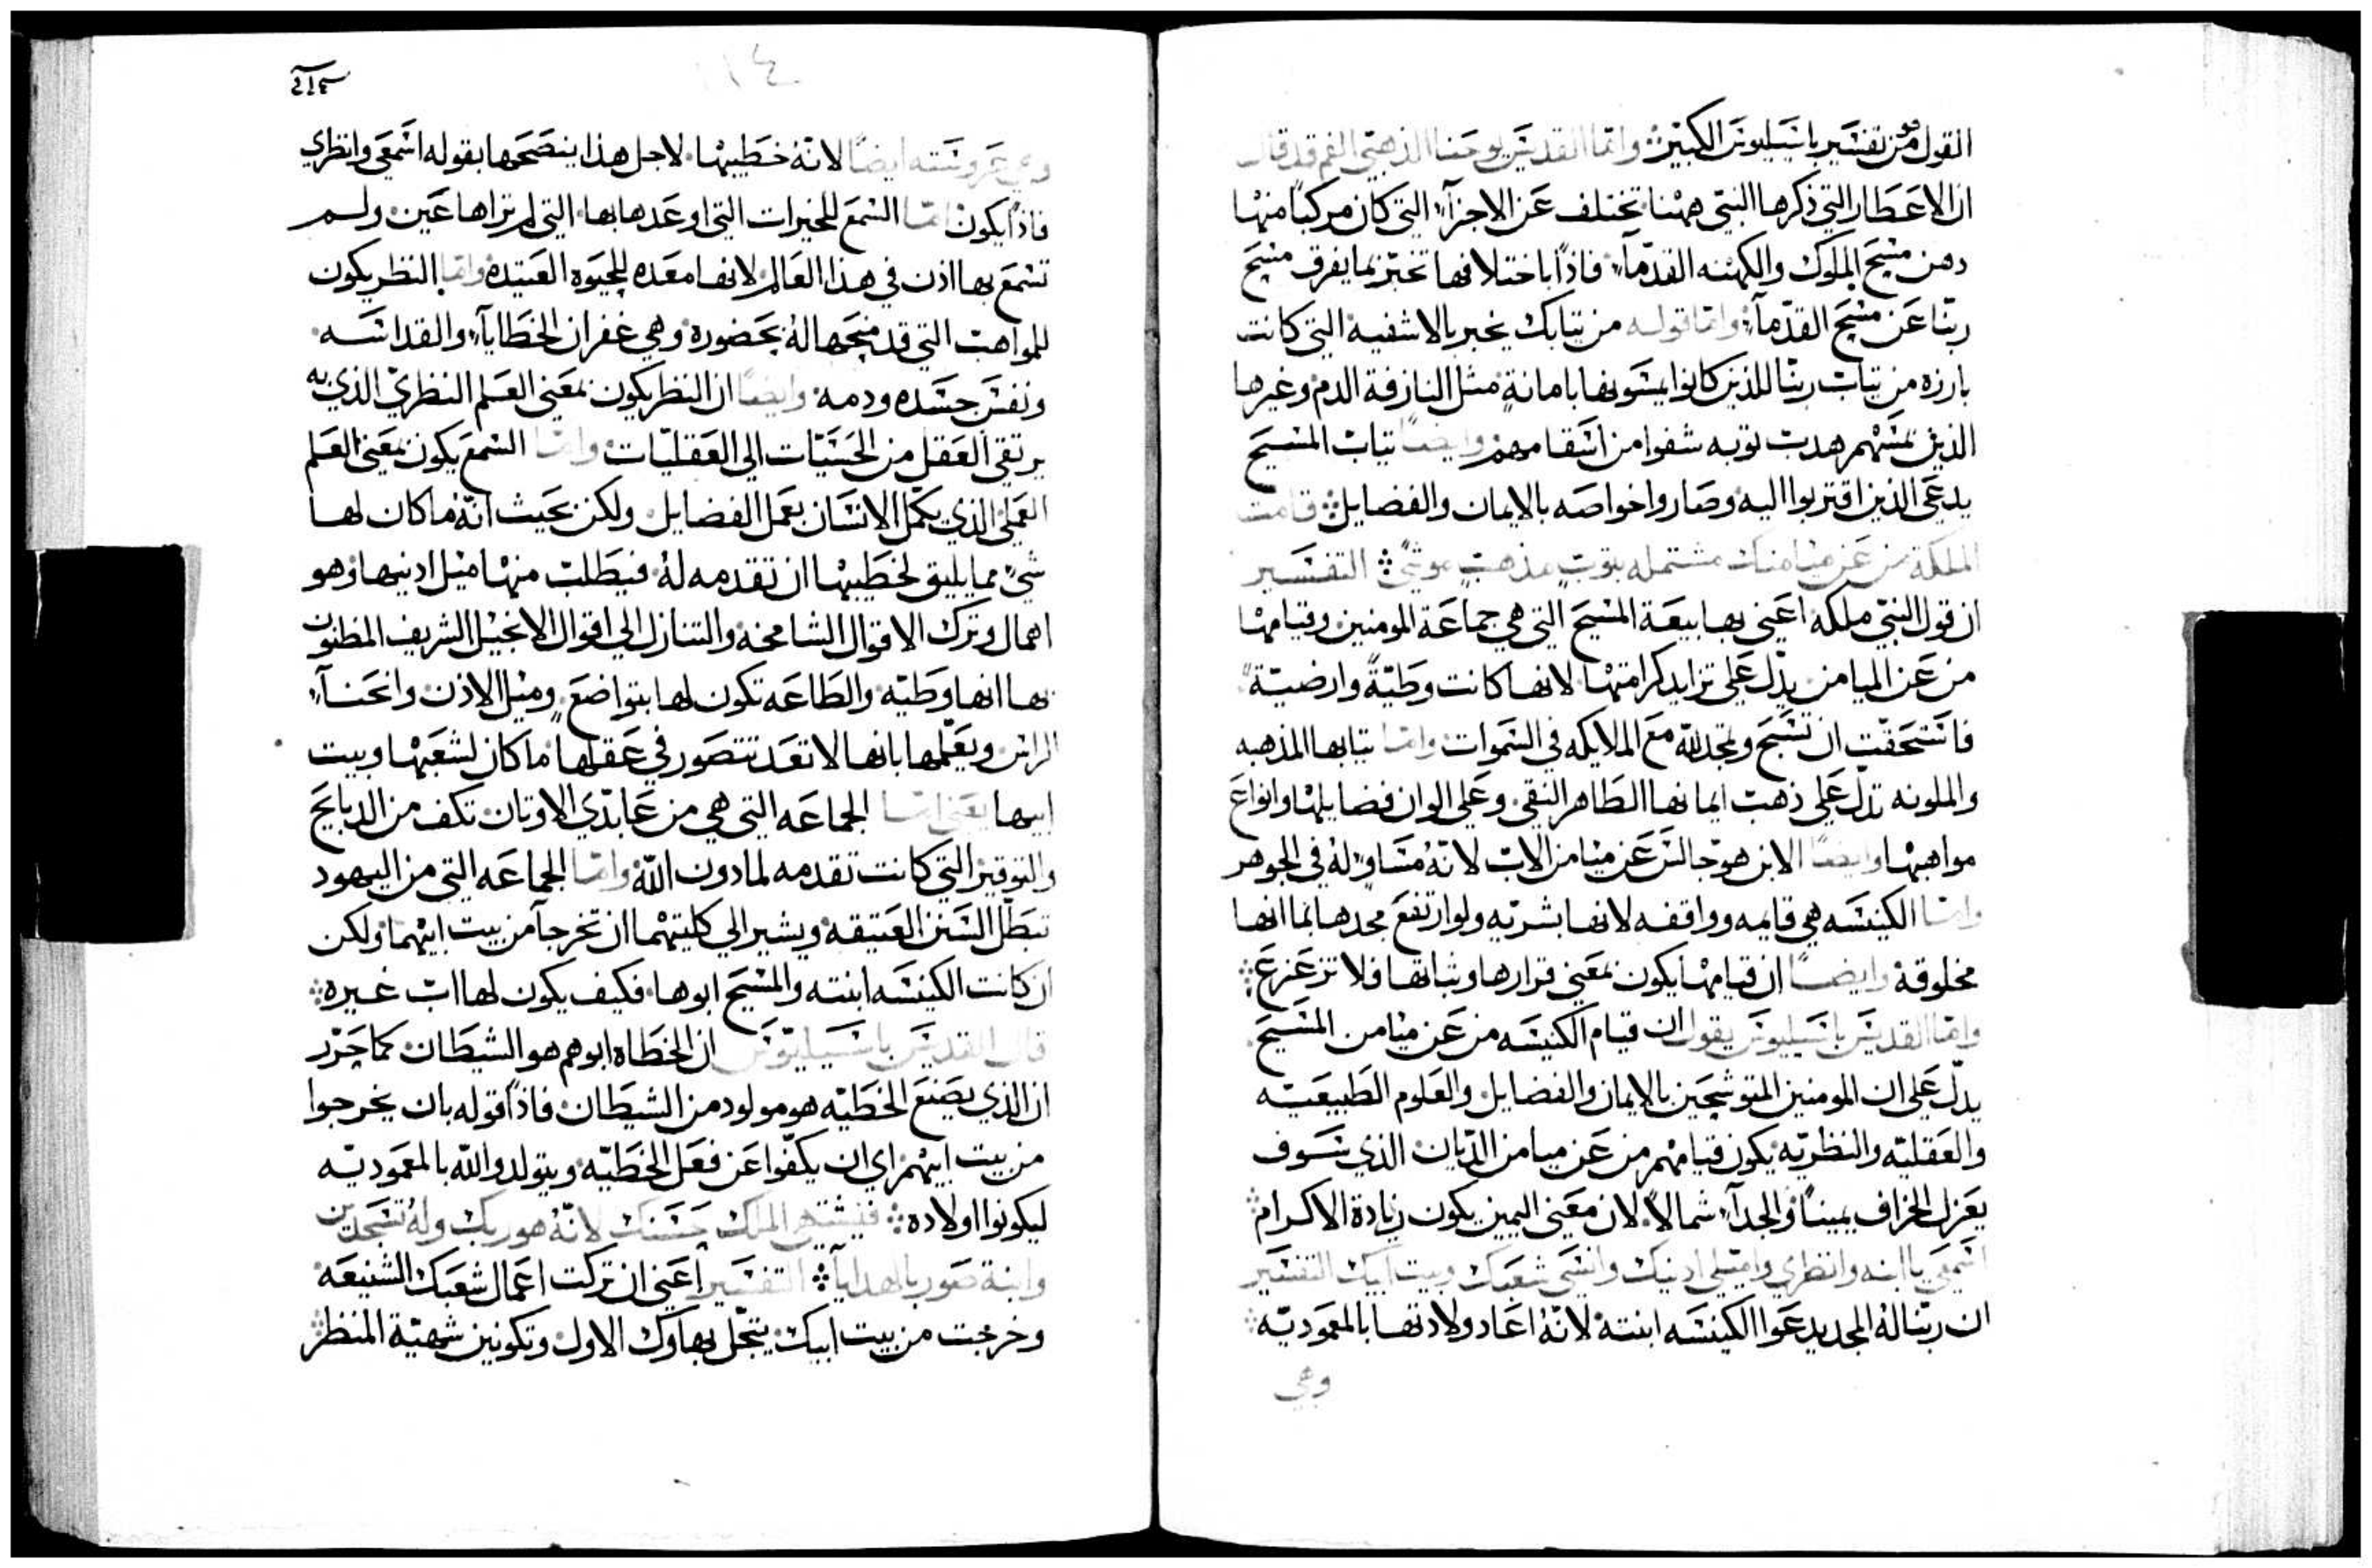 القول من تفسير باسيليوس الكبير واما القديس يوحنا الذهبي الفم قد قال
ان الاعطار التي ذكرها النبي ههنا تختلف عن الاجزآء التي كان مركبا منها
دهن مسيح الملوك والكهنه القدمآء فاذا باختلافها تخبر بما يفرق مسيح
ربنا عن مسيح القدمآء واما قوله من تيابك يخبر بالاشفيه التي كانت
بارزه من تياب ربنا للذين كانوا يمسونها بامانة مثل النازفة الدم وغيرها
الذين بمسهم هدب توبه شفوا من اسقامهم وايضا تياب المسيح
يدعى الذين اقتربوا اليه وصاروا خواصه بالايمان والفضايل قامت
الملكة من عن ميامنك مشتمله بتوب مذهب موشى التفسير
ان قول النبي ملكه اعني بها بيعة المسيح التي هي جماعة المومنين وقيامها
من عن الميامن يدل على تزايد كرامتها لانها كانت وطية وارضية
فاستحقت ان تسبح وتمجد لله مع الملايكه في السموات واما تيابها المذهبه
والملونه تدل على ذهب ايمانها الطاهر النقي وعلى الوان فضايلها وانواع
مواهبها وايضا الابن هو جالس عن ميامن الاب لانه مساو له في الجوهر
واما الكنيسه هي قايمه وواقفه لانها بشريه ولو ارتفع مجدها بما انها
مخلوقة وايضا ان قيامها يكون بمعنى قرارها وثباتها فلا تزعزع
واما القديس باسيليوس يقول ان قيام الكنيسه من عن ميامن المسيح
يدل على ان المومنين المتوشحين بالايمان والفضايل والعلوم الطبيعيه
والعقليه والنظريه يكون قيامهم من عن ميامن الديان الذي سوف
يعزل الخراف يمينا والجدآء شمالا لان معنى اليمين يكون زيادة الاكرام
اسمعي يا ابنه وانظري واميلي ادنيك وانسي شعبك وبيت ابيك التفسير
ان ربنا له المجد يدعوا الكنيسه ابنته لانه اعاد ولادتها بالمعموديه
وهي
١١٤
وهي عروسته ايضا لانه خطيبها لاجل هذا ينصحها بقوله اسمعي وانظري
فاذا يكون اما السمع للخيرات التي اوعدها بها التي لم تراها عين ولم
تسمع بها اذن في هذا العالم لانها معده للحيوه العتيده واما النظر يكون
للمواهب التي قد منحها له بحضوره وهي غفران الخطايآء والقداسه
ونفس جسده ودمه وايضا ان النظر يكون بمعنى العلم النظري الذي به
يرتقي العقل من الحسيات الى العقليات واما السمع يكون بمعنى العلم
العملي الذي يكمل الانسان بعمل الفضايل ولكن بحيث انه ما كان لها
شيء مما يليق لخطيبها ان تقدمه له فيطلب منها ميل ادنيها وهو
اهمال وترك الاقوال الشامخه والتنازل الى اقوال الانجيل الشريف المظنون
بها انها وطيه والطاعه تكون لها بتواضع وميل الاذن وانحنآء
الراس ويعلمها بانها لا تعد تتصور في عقلها ما كان لشعبها وبيت
ابيها يعني اما الجماعه التي هي من عابدي الاوتان تكف من الدبايح
والتوقير التي كانت تقدمه لما دون الله واما الجماعه التي من اليهود
تبطل السنن العتيقه ويشير الى كليتهما ان تخرجآ من بيت ابيهما ولكن
ان كانت الكنيسه ابنته والمسيح ابوها فكيف يكون لها اب غيره
قال القديس باسيليوس ان الخطاه ابوهم هو الشيطان كما حرر
ان الذي يصنع الخطيه هو مولود من الشيطان فاذا قوله بان يخرجوا
من بيت ابيهم اي ان يكفوا عن فعل الخطيه ويتولدوا لله بالمعموديه
ليكونوا اولاده فيشتهي الملك حسنك لانه هو ربك وله تسجدين
وابنة صور بالهدايآ التفسير اعني ان تركت اعمال شعبك الشنيعه
وخرجت من بيت ابيك يتحل بهاوك الاول وتكونين شهية المنظر